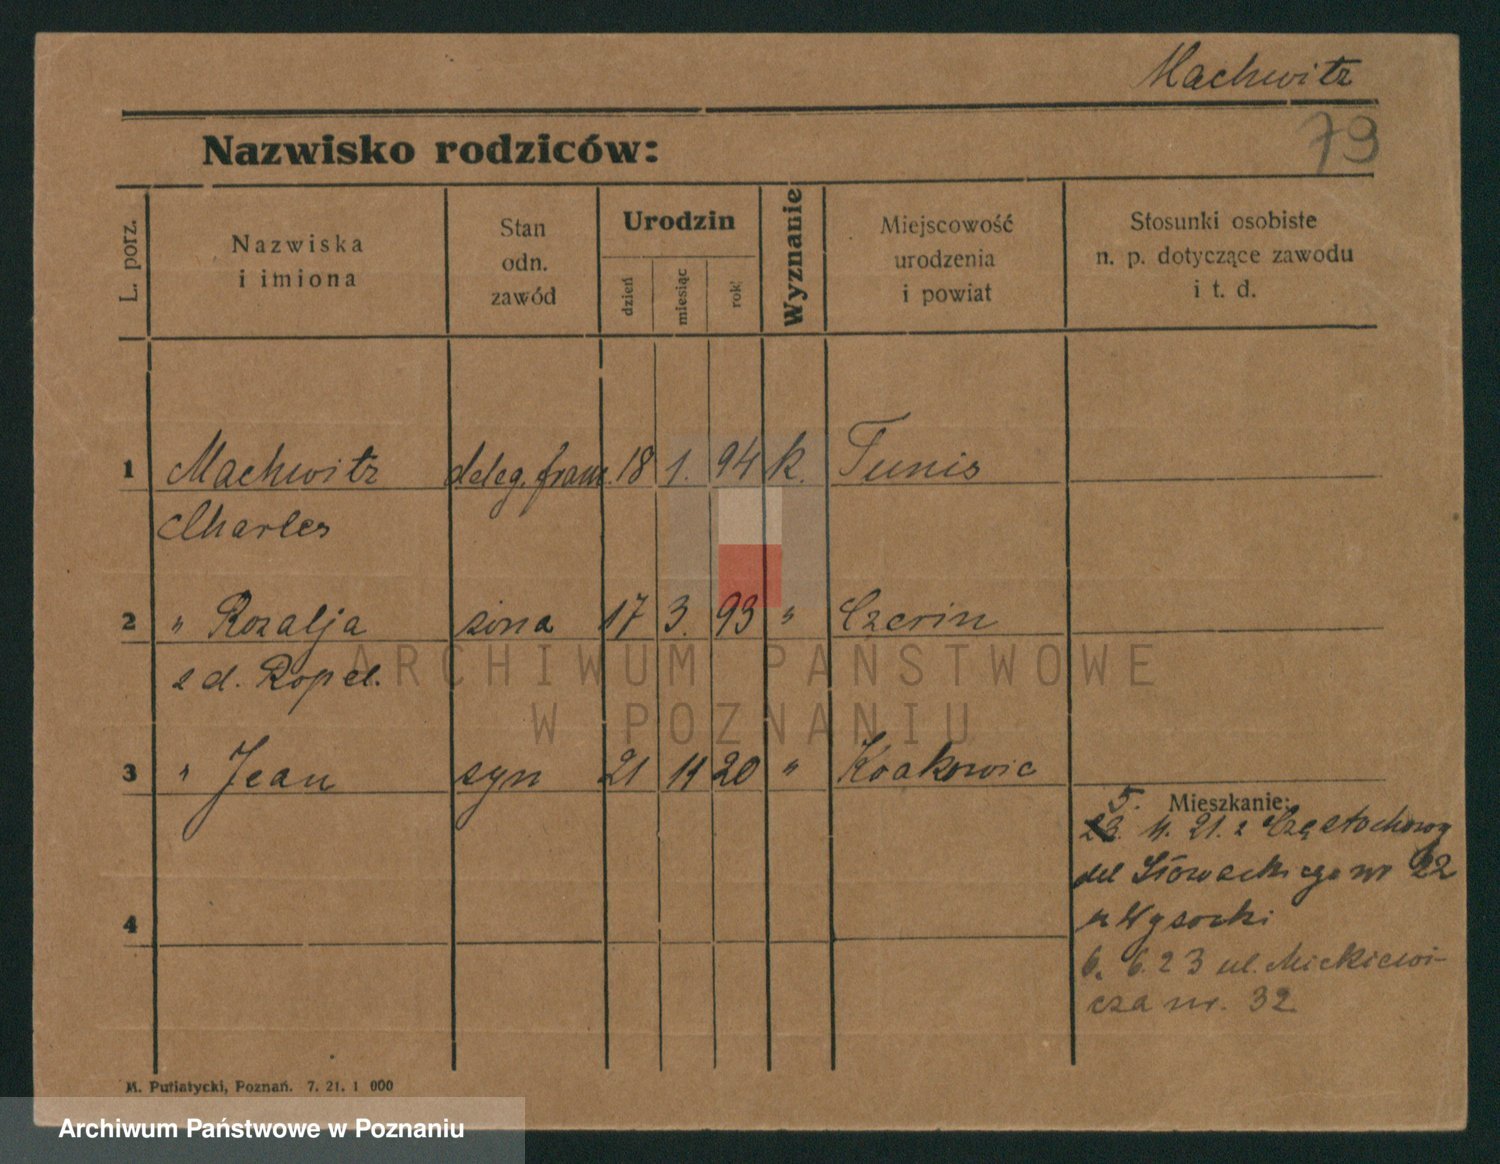 Machwitz
79
Nazwisko rodziców:
L. porz.
Nazwiska
i imiona
Stan
odn.
zawód
Urodzin
dzień
miesiąc
rok
Wyznanie
Miejscowość
urodzenia
i powiat
Stosunki osobiste
n. p. dotyczące zawodu
i t. d.
1 Machwitz deleg. franc. 18 1. 94 k. Tunis
Charles
2 " Rozalja żona 17 3. 93 " Czerin
z d. Ropel.
3 " Jean syn 21 11 20 "
5. Mieszkanie:
4. 21. z Częstochowy
Słowackiego nr 22
u Wysocki
6. 6. 23 ul. Mickiewi-
cza nr. 32
4
ARCHIWUM PAŃSTWOWE
W POZNANIU
M. Putiatycki, Poznań. 7. 21. 1 000
Archiwum Państwowe w Poznaniu